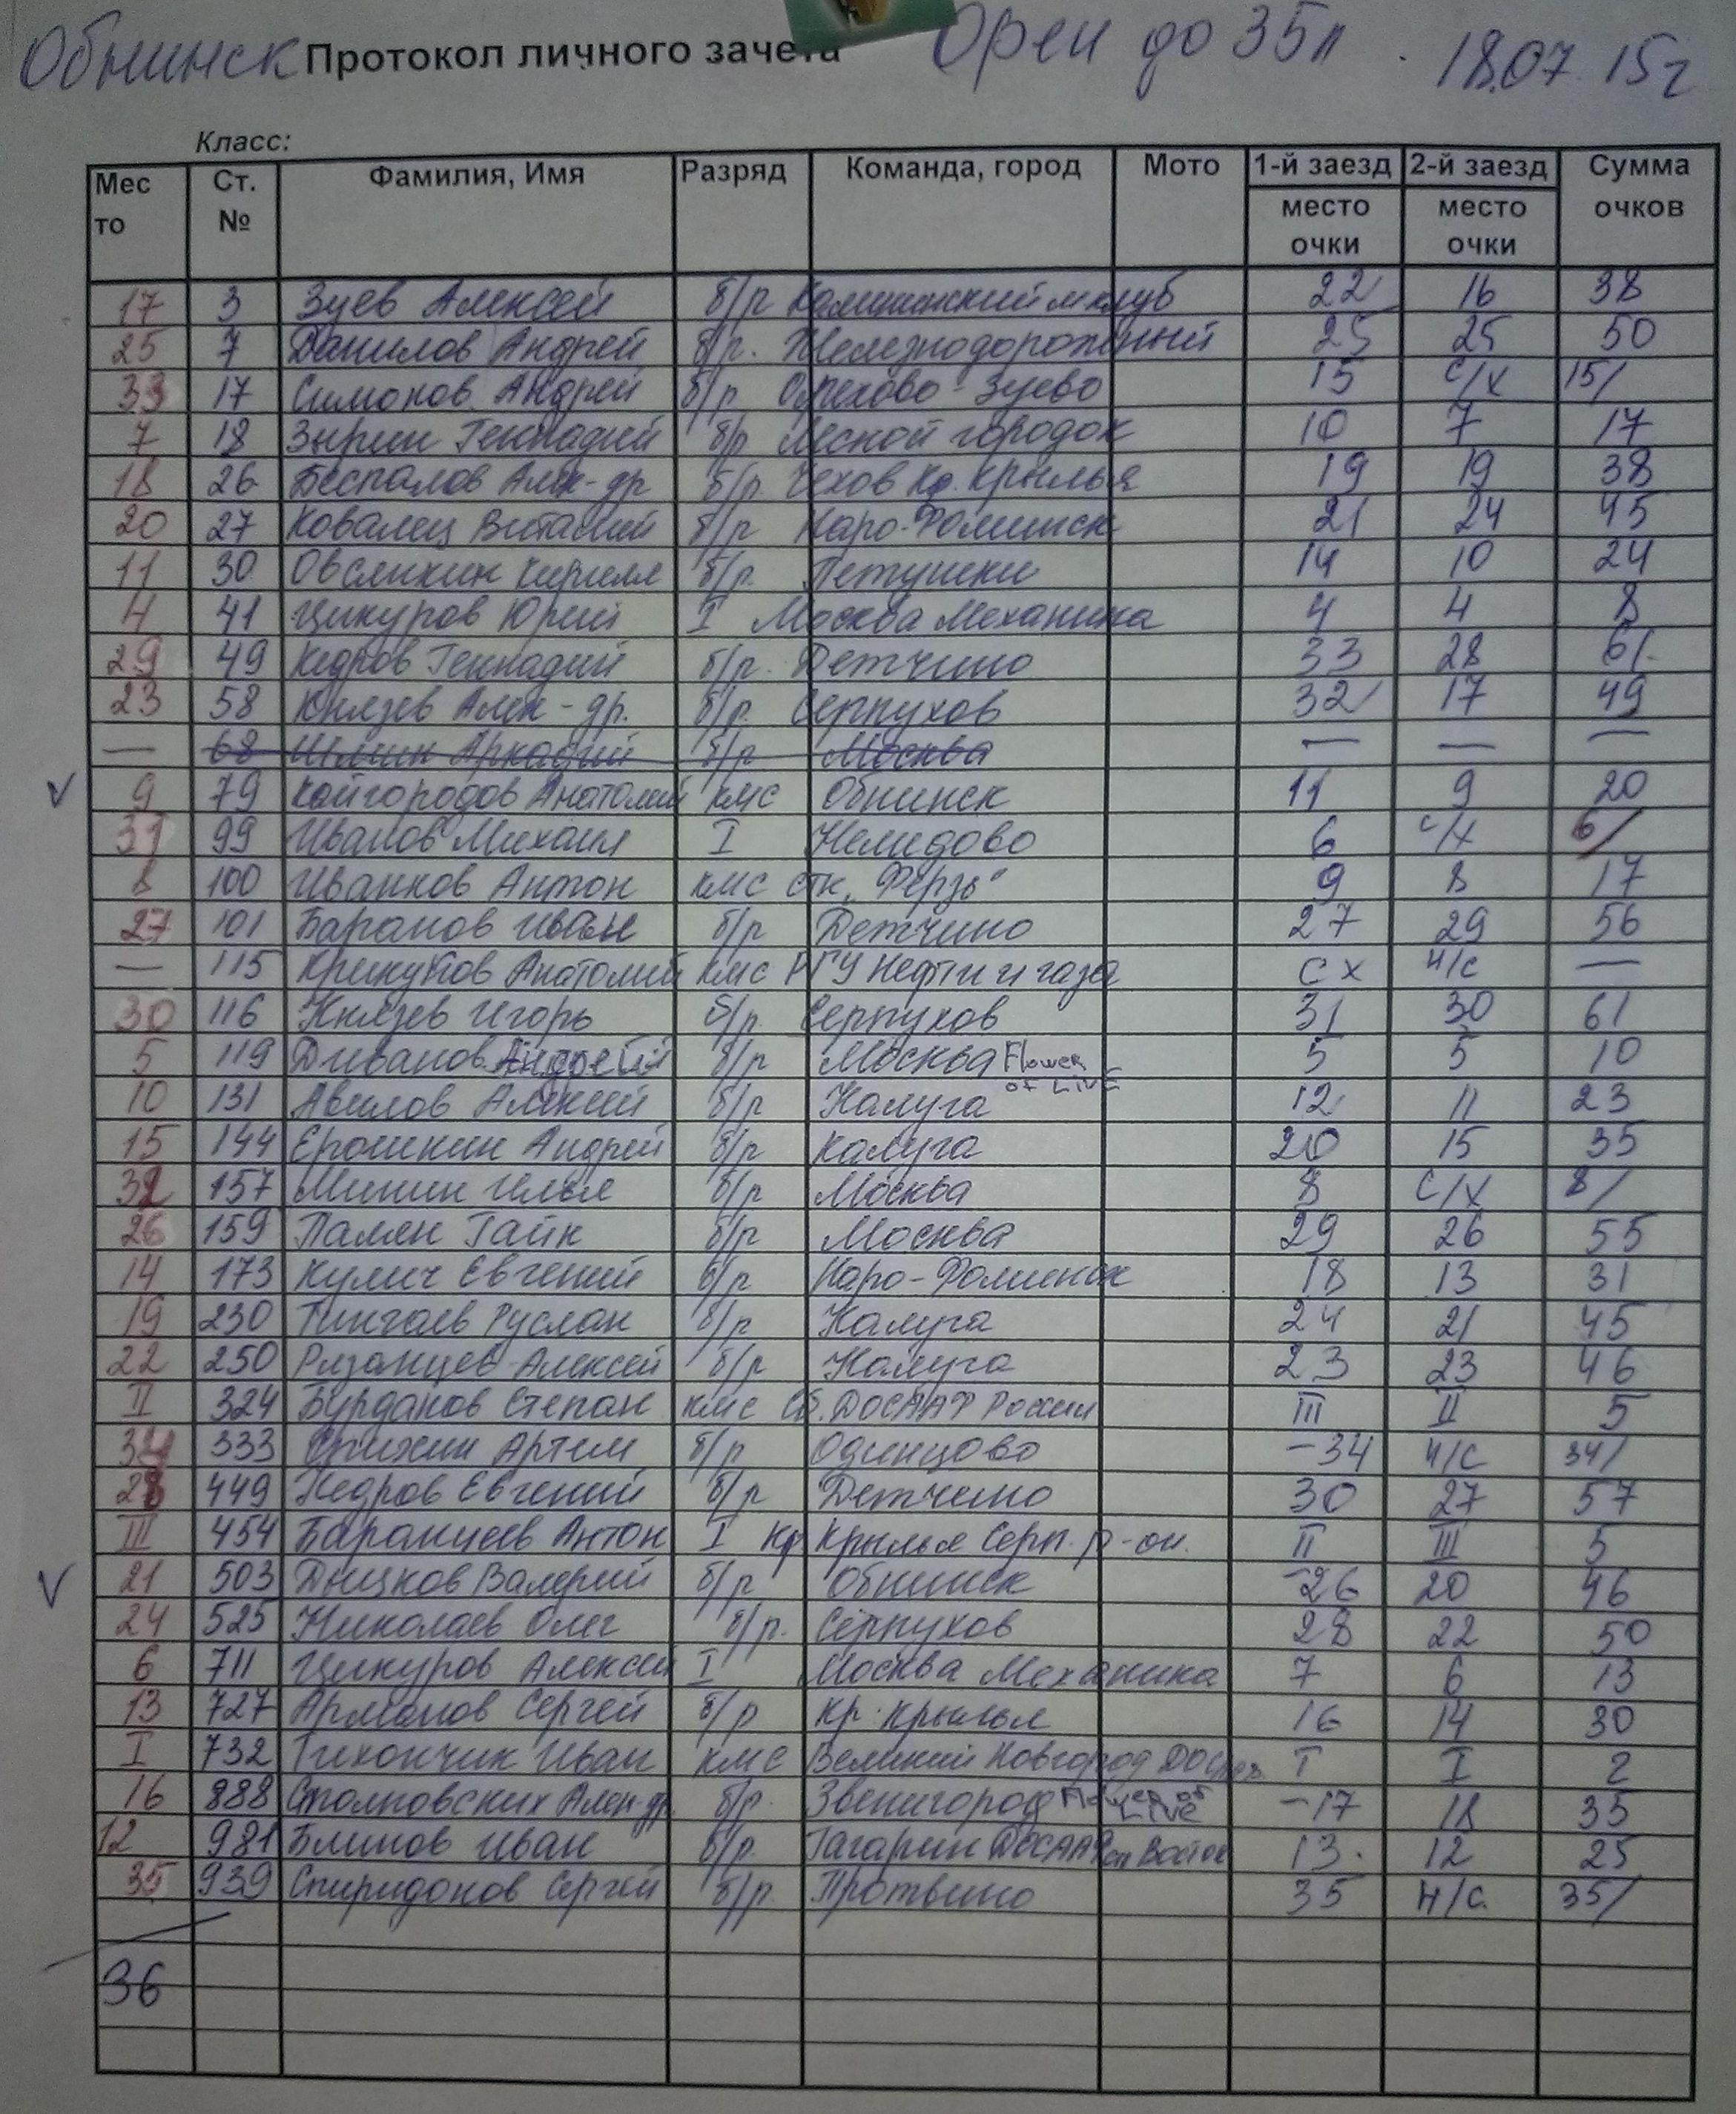 Обнинск Протокол личного зачета Open до 35л. 18.07.15г
Класс:
Место Ст. № Фамилия, Имя Разряд Команда, город Мото 1-й заезд место очки 2-й заезд место очки Сумма очков
17 3 Зуев Алексей б/р 22 16 38
25 7 Данилов Андрей б/р. Железнодорожный 25 25 50
33 17 Симонов Андрей б/р Орехово-Зуево 15 с/х 15/
7 18 Зырин Геннадий б/р Лесной городок 10 7 17
18 26 Беспалов Алек-др б/р. Чехов Кр. Крылья 19 19 38
20 27 Ковалец Виталий б/р Наро-Фоминск 21 24 45
11 30 Овсянкин Кирилл б/р. Петушки 14 10 24
4 41 Цикуров Юрий I Москва Механика 4 4 8
29 49 Кедров Геннадий б/р. Детчино 33 28 61
23 58 Князев Алек-др. б/р. Серпухов 32 17 49
— 68 Аркадий б/р Москва — — —
V 9 79 Кайгородов Анатолий кмс Обнинск 11 9 20
31 99 Иванов Михаил I Нелидово 6 с/х 6/
8 100 Иванков Антон кмс СТК „Ферзь" 9 8 17
27 101 Баранов Иван б/р Детчино 27 29 56
— 115 Анатолий кмс РГУ Нефти и газа с х н/с —
30 116 Князев Игорь б/р. Серпухов 31 30 61
5 119 Диванов Андрей б/р Москва Flower of Live 5 5 10
10 131 Авилов Алексей б/р Калуга 12 11 23
15 144 Ерошкин Андрей б/р Калуга 20 15 35
32 157 Минин Илья б/р Москва 8 с/х 8/
26 159 Гайк б/р Москва 29 26 55
14 173 Кулич Евгений б/р Наро-Фоминск 18 13 31
19 230 Руслан б/р Калуга 24 21 45
22 250 Рязанцев Алексей б/р Калуга 23 23 46
II 324 Бурданов Степан кмс Сб. ДОСААФ России III II 5
34 333 Артем б/р Одинцово -34 н/с 34/
28 449 Кедров Евгений б/р Детчино 30 27 57
III 454 Баранцев Антон I Кр. Крылья Серп. р-он. II III 5
V 21 503 Валерий б/р Обнинск -26 20 46
24 525 Николаев Олег б/р. Серпухов 28 22 50
6 711 Цикуров Алексей I Москва Механика 7 6 13
13 727 Арманов Сергей б/р Кр. Крылья 16 14 30
I 732 Тихончик Иван кмс Великий Новгород I I 2
16 888 Столповских Алек-др. б/р. Звенигород Flower of Live -17 18 35
12 981 Блинов Иван б/р. Гагарин ДОСААФ Восток 13. 12 25
35 939 Спиридонов Сергей б/р. Протвино 35 н/с. 35/
36